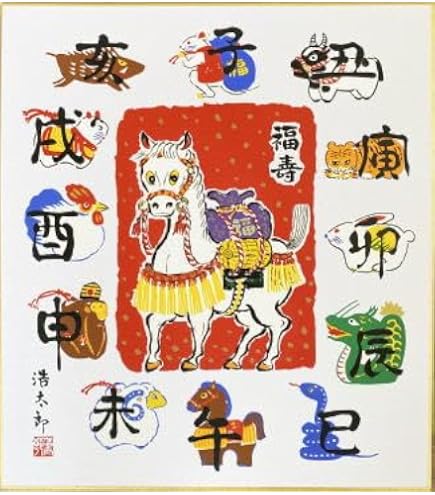 子
丑
寅
卯
辰
巳
午
未
申
酉
戌
亥
福
福壽
福
浩太郎